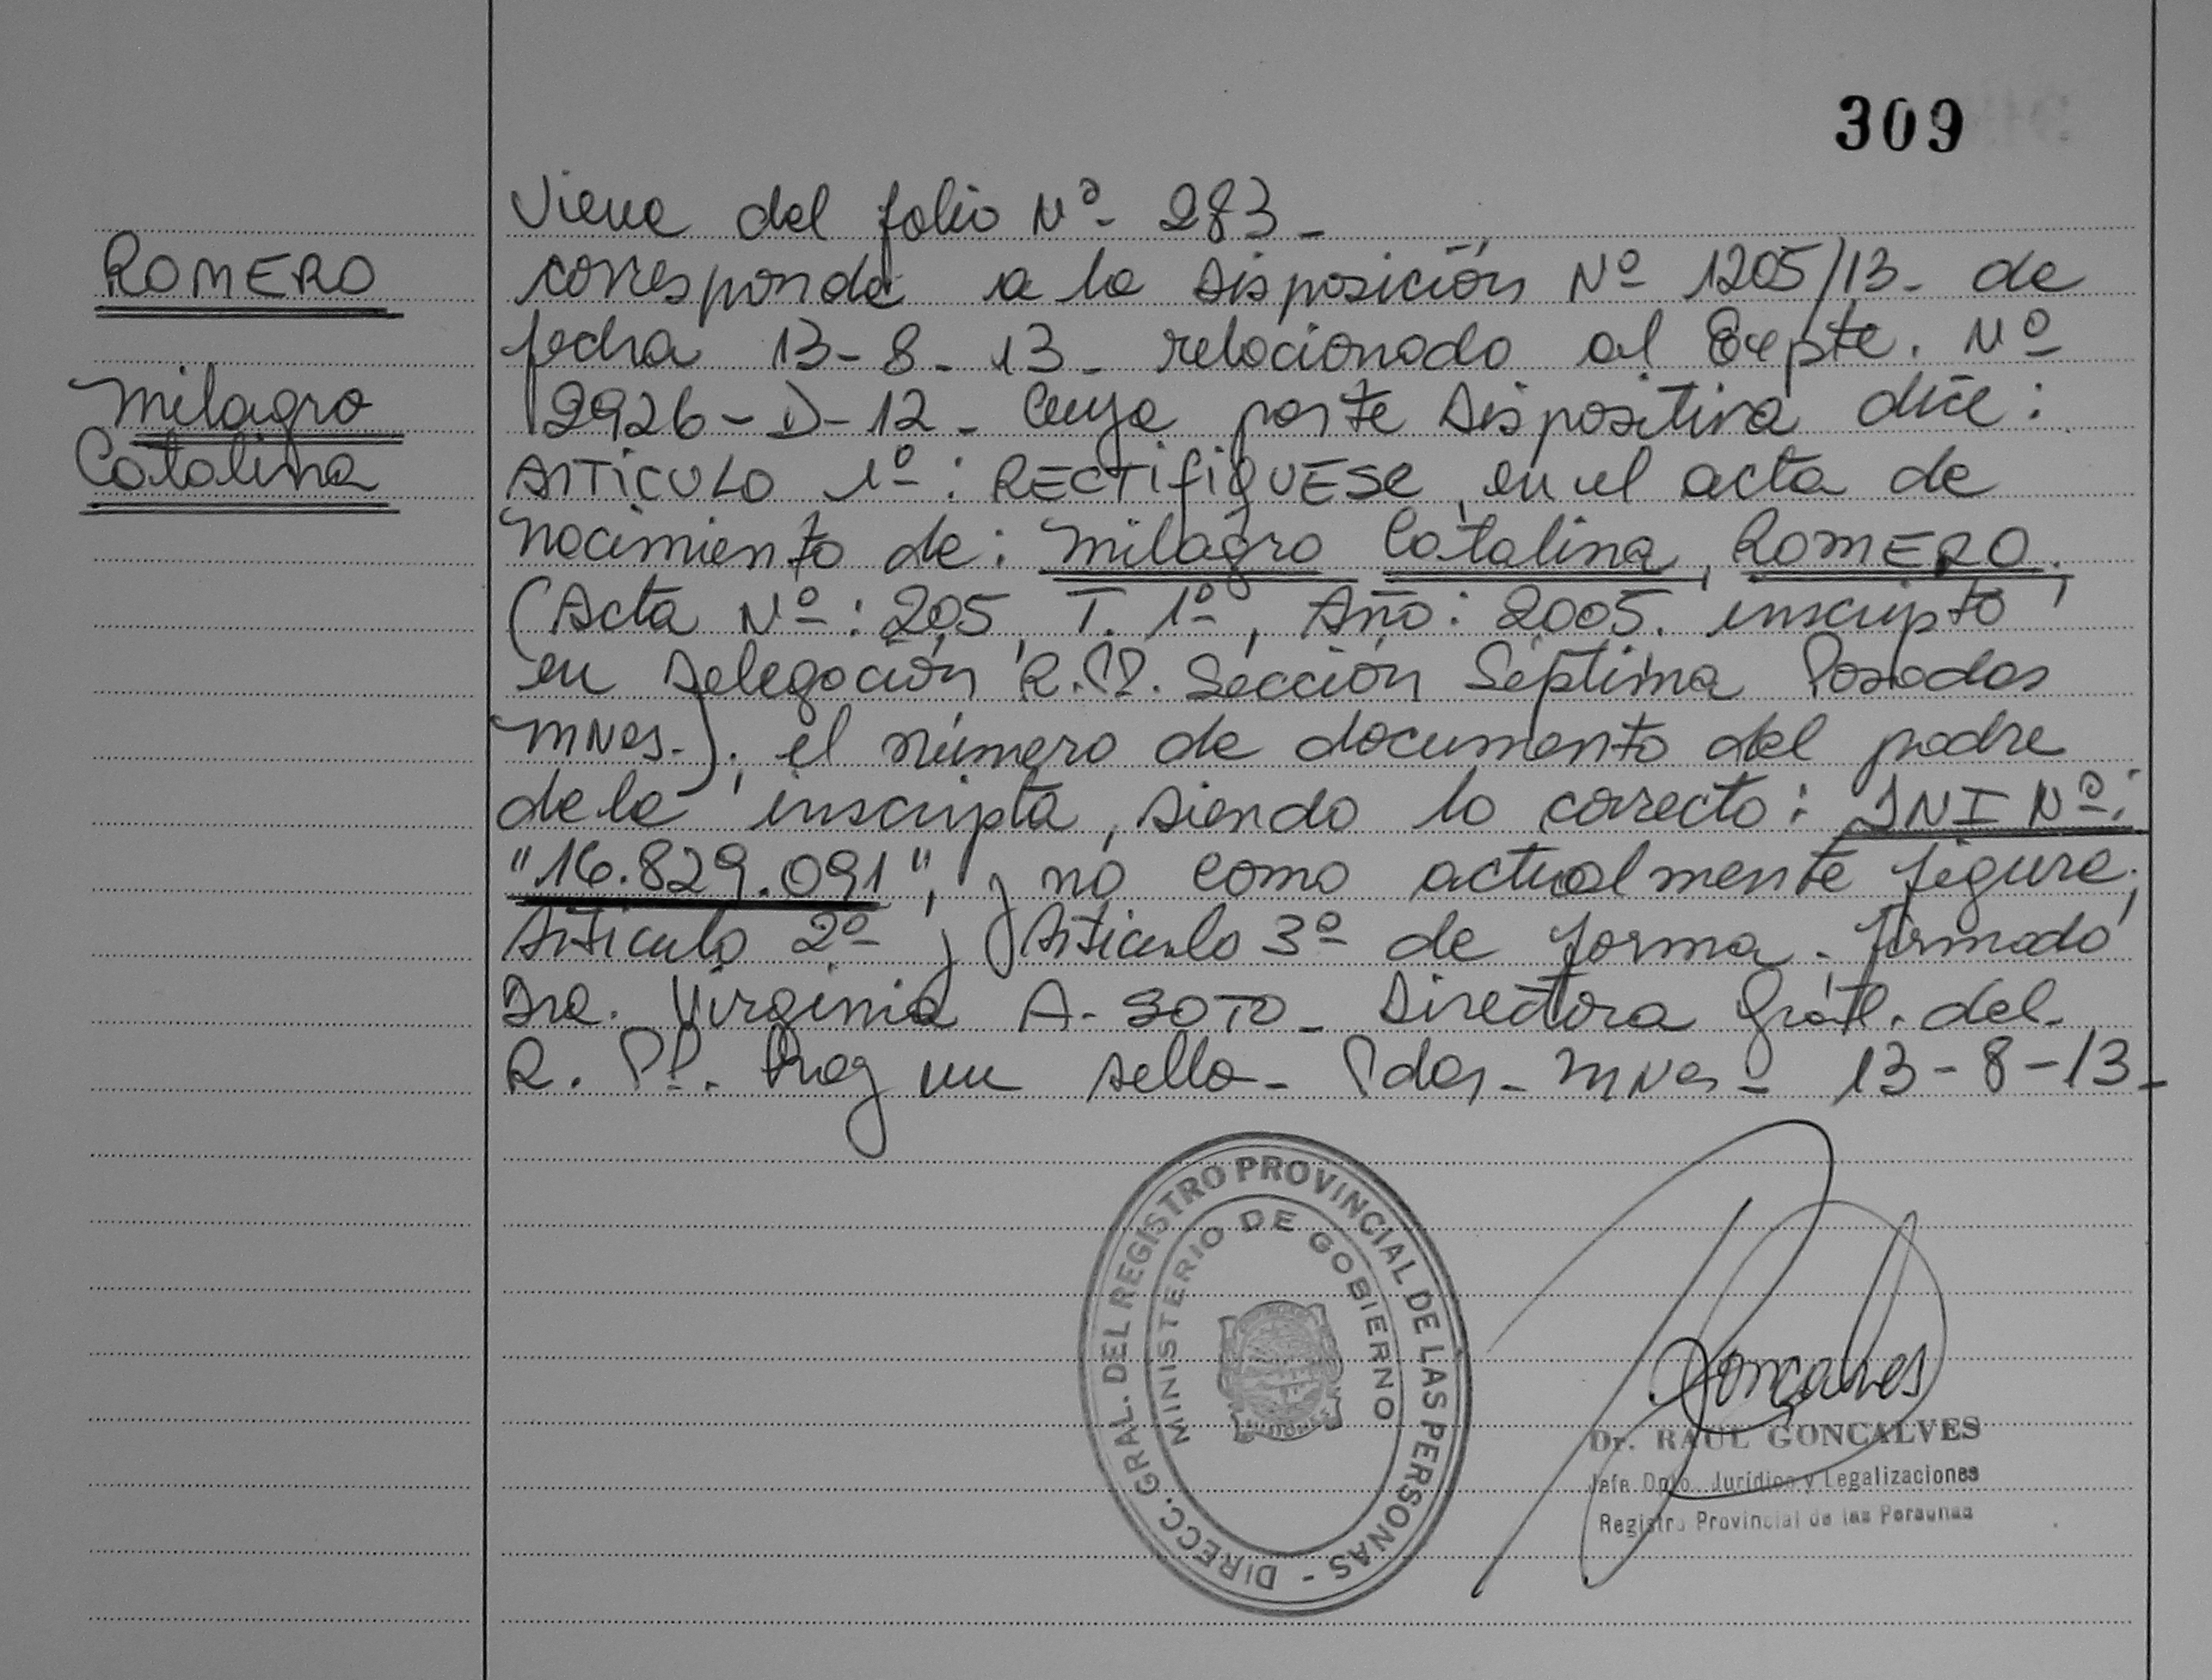 309
Viene del folio Nº 283 -
ROMERO
corresponde a la Disposición Nº 1205/13 - de
fecha 13-8-13 - relacionado al Expte. Nº
Milagro
2926-D-12 - Cuya parte Dispositiva dice:
Catalina
ARTICULO 1º: RECTIFIQUESE, en el acta de
nacimiento de: Milagro Catalina, ROMERO.
(Acta Nº: 205, T. 1º, Año: 2005. inscripto
en Delegación R.P.P. Sección Séptima Posadas
Mnes.); el número de documento del padre
de la inscripta, siendo lo correcto: DNI Nº:
"16.829.091", y no como actualmente figura;
Articulo 2º y Articulo 3º de forma. firmado
Dra. Virginia A. SOTO - Directora Gral. del
R. PP. Hay un sello - Pdas - Mnes - 13-8-13 -
DIRECC. GRAL. DEL REGISTRO PROVINCIAL DE LAS PERSONAS -
MINISTERIO DE GOBIERNO
MISIONES
Goncalves
Dr. RAUL GONCALVES
Jefe Dpto. Jurídico y Legalizaciones
Registro Provincial de las Personas